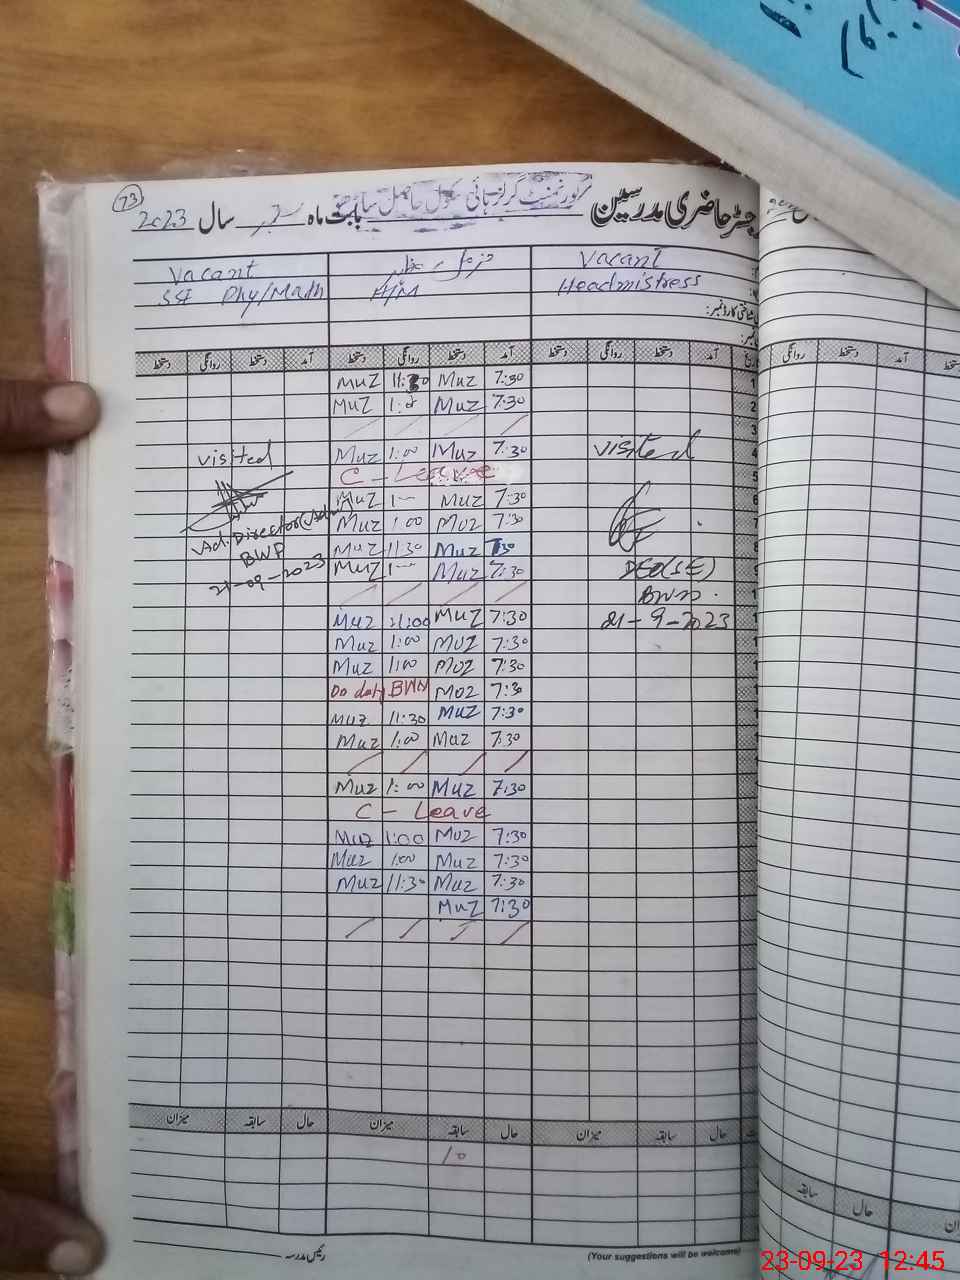 73
رجسٹر حاضری مدرسین گورنمنٹ گرلز ہائی سکول بابت ماہ ستمبر سال 2023
Vacant Vacant
SSE Phy/Math H/M Headmistress
شناختی کارڈ نمبر:
دستخط روانگی دستخط آمد دستخط روانگی دستخط آمد دستخط روانگی دستخط آمد
روانگی دستخط آمد دستخط
Muz 11:30 Muz 7:30 1
Muz 1:0 Muz 7:30 2
3
Muz 1:00 Muz 7:30 4
visited visited
C - Leave 5
Muz 1— Muz 7:30 6
Muz 1:00 Muz 7:30 7
Muz 11:30 Muz 7:30 8
Muz 1— Muz 7:30
Ad. Director (Admin)
BWP
21-09-2023
DEO (SE)
BWN.
21-9-2023
Muz 11:00 Muz 7:30
Muz 1:00 Muz 7:30
Muz 1:00 Muz 7:30
On duty BWN Muz 7:30
Muz 11:30 Muz 7:30
Muz 1:00 Muz 7:30
Muz 1:00 Muz 7:30
C - Leave
Muz 1:00 Muz 7:30
Muz 1:00 Muz 7:30
Muz 11:30 Muz 7:30
Muz 7:30
میزان سابقہ حال میزان سابقہ حال میزان سابقہ حال
سابقہ حال
10
رئیس مدرسہ
(Your suggestions will be welcome)
23-09-23 12:45